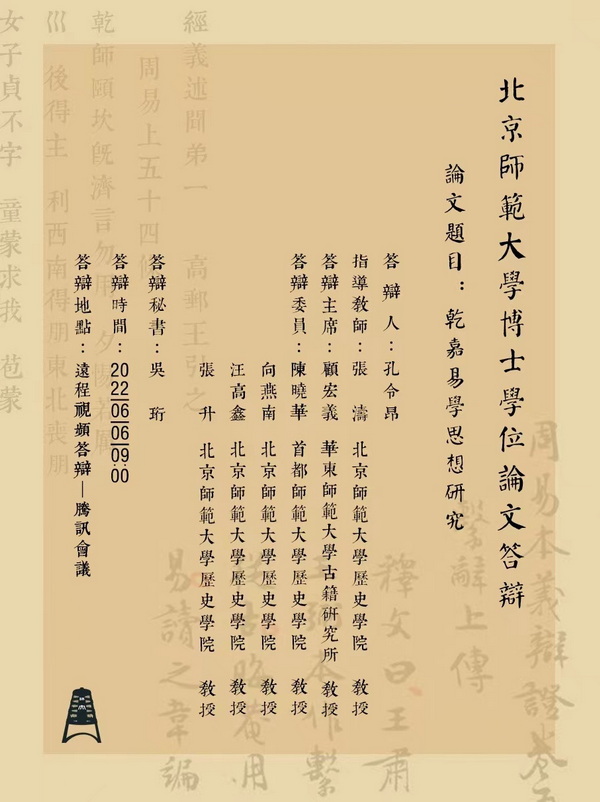 北京師範大學博士學位論文答辯
論文題目：乾嘉易學思想研究
答辯人：孔令昂
指導教師：張濤 北京師範大學歷史學院 教授
答辯主席：顧宏義 華東師範大學古籍研究所 教授
答辯委員：陳曉華 首都師範大學歷史學院 教授
向燕南 北京師範大學歷史學院 教授
汪高鑫 北京師範大學歷史學院 教授
張升 北京師範大學歷史學院 教授
答辯秘書：吳珩
答辯時間：2022|06|06|09:00
答辯地點：遠程視頻答辯—騰訊會議
周易本義辯證卷
繫辭上傳
釋文曰王肅
王弼本作繫
晦菴用
易讀之韋編
經義述聞弟一 高郵王引之
周易上五十四條
乾師頤坎既濟言勿用
後得主 利西南得朋東北喪朋
女子貞不字 童蒙求我 苞蒙